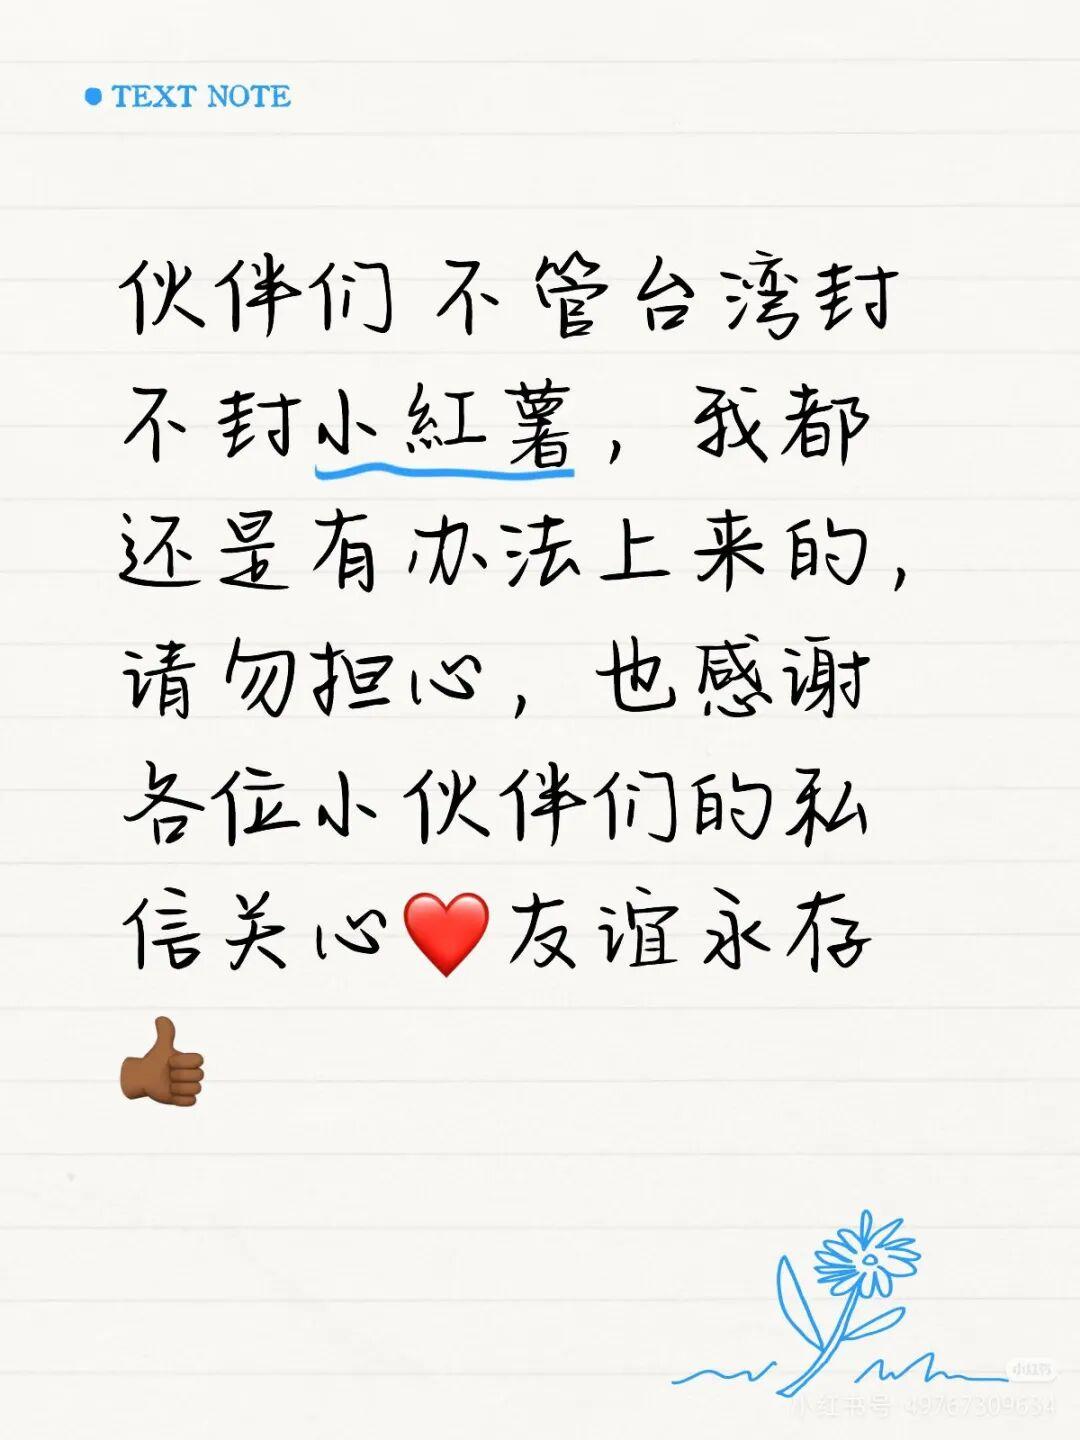 TEXT NOTE
伙伴们 不管台湾封
不封小紅薯，我都
还是有办法上来的，
请勿担心，也感谢
各位小伙伴们的私
信关心❤️友谊永存
👍🏾
小红书
小红书号 49767309634